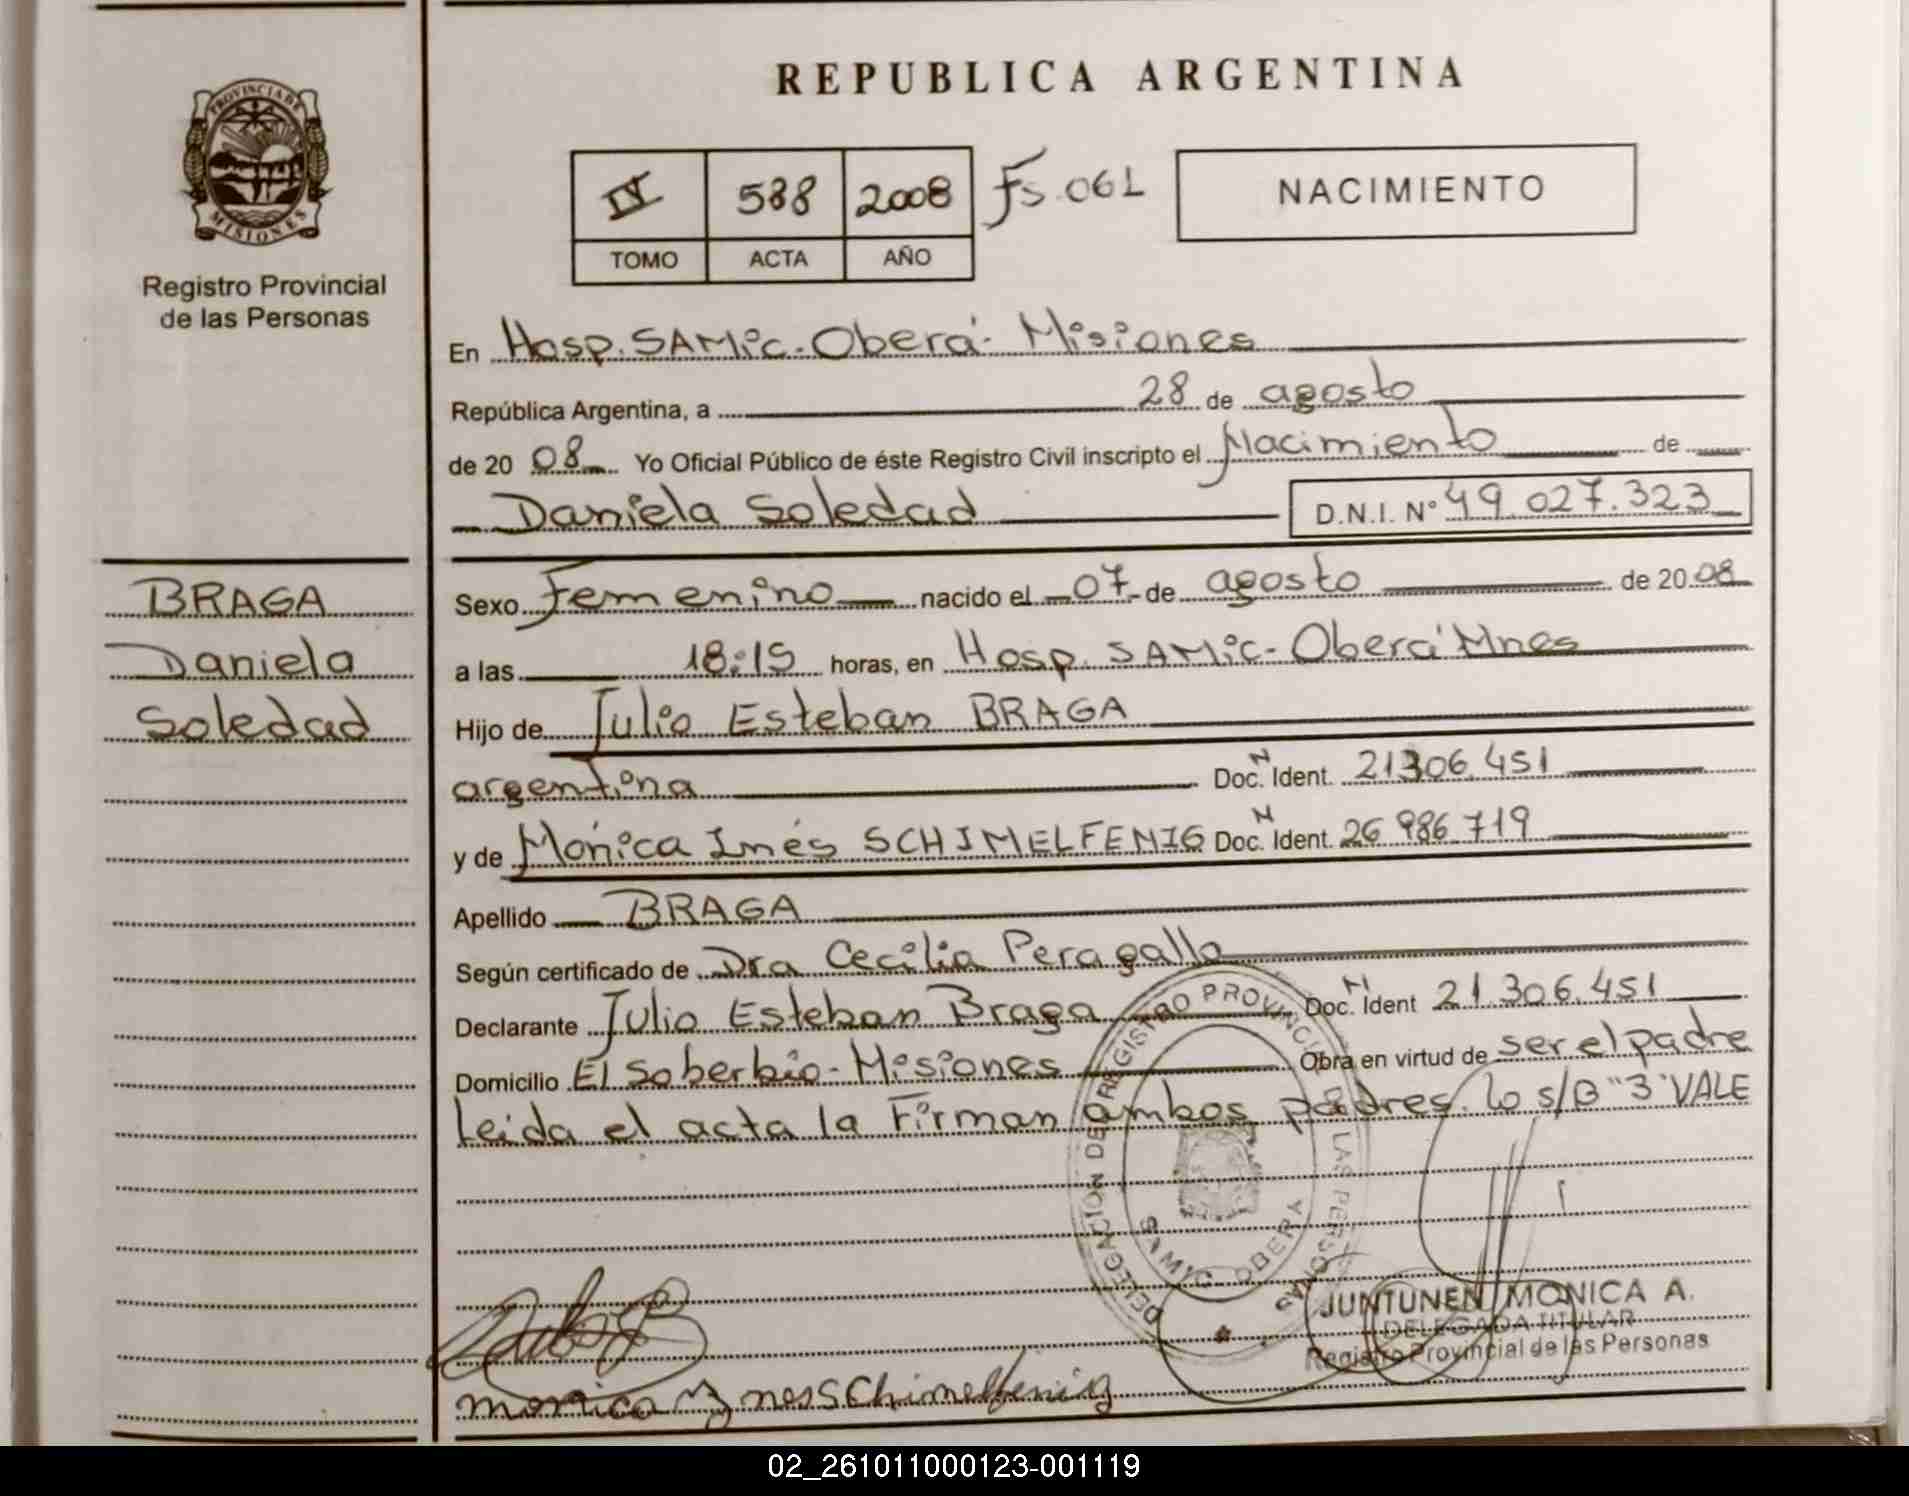 PROVINCIA DE
MISIONES
Registro Provincial
de las Personas
BRAGA
Daniela
Soledad
REPUBLICA ARGENTINA
IV 588 2008 Fs. 061
TOMO ACTA AÑO
NACIMIENTO
En Hosp. SAMic - Oberá - Misiones
República Argentina, a 28 de agosto
de 20 08 Yo Oficial Público de éste Registro Civil inscripto el Nacimiento de
Daniela Soledad D.N.I. Nº 49.027.323
Sexo Femenino nacido el 07 de agosto de 20 08
a las 18:15 horas, en Hosp. SAMic - Oberá Mnes
Hijo de Julio Esteban BRAGA
argentina Doc. N Ident. 21306.451
y de Mónica Inés SCHIMELFENIG Doc. N Ident. 26.986.719
Apellido BRAGA
Según certificado de Dra Cecilia Peragallo
Declarante Julio Esteban Braga Doc. N Ident 21.306.451
Domicilio El Soberbio - Misiones Obra en virtud de ser el padre
Leida el acta la Firman ambos padres. Lo s/B "3" VALE
DELEGACION DE REGISTRO PROVINCIAL DE LAS PERSONAS
SAMIC OBERA
JUNTUNEN MONICA A.
DELEGADA TITULAR
Registro Provincial de las Personas
monica Ynes Schimelfenig
02_261011000123-001119